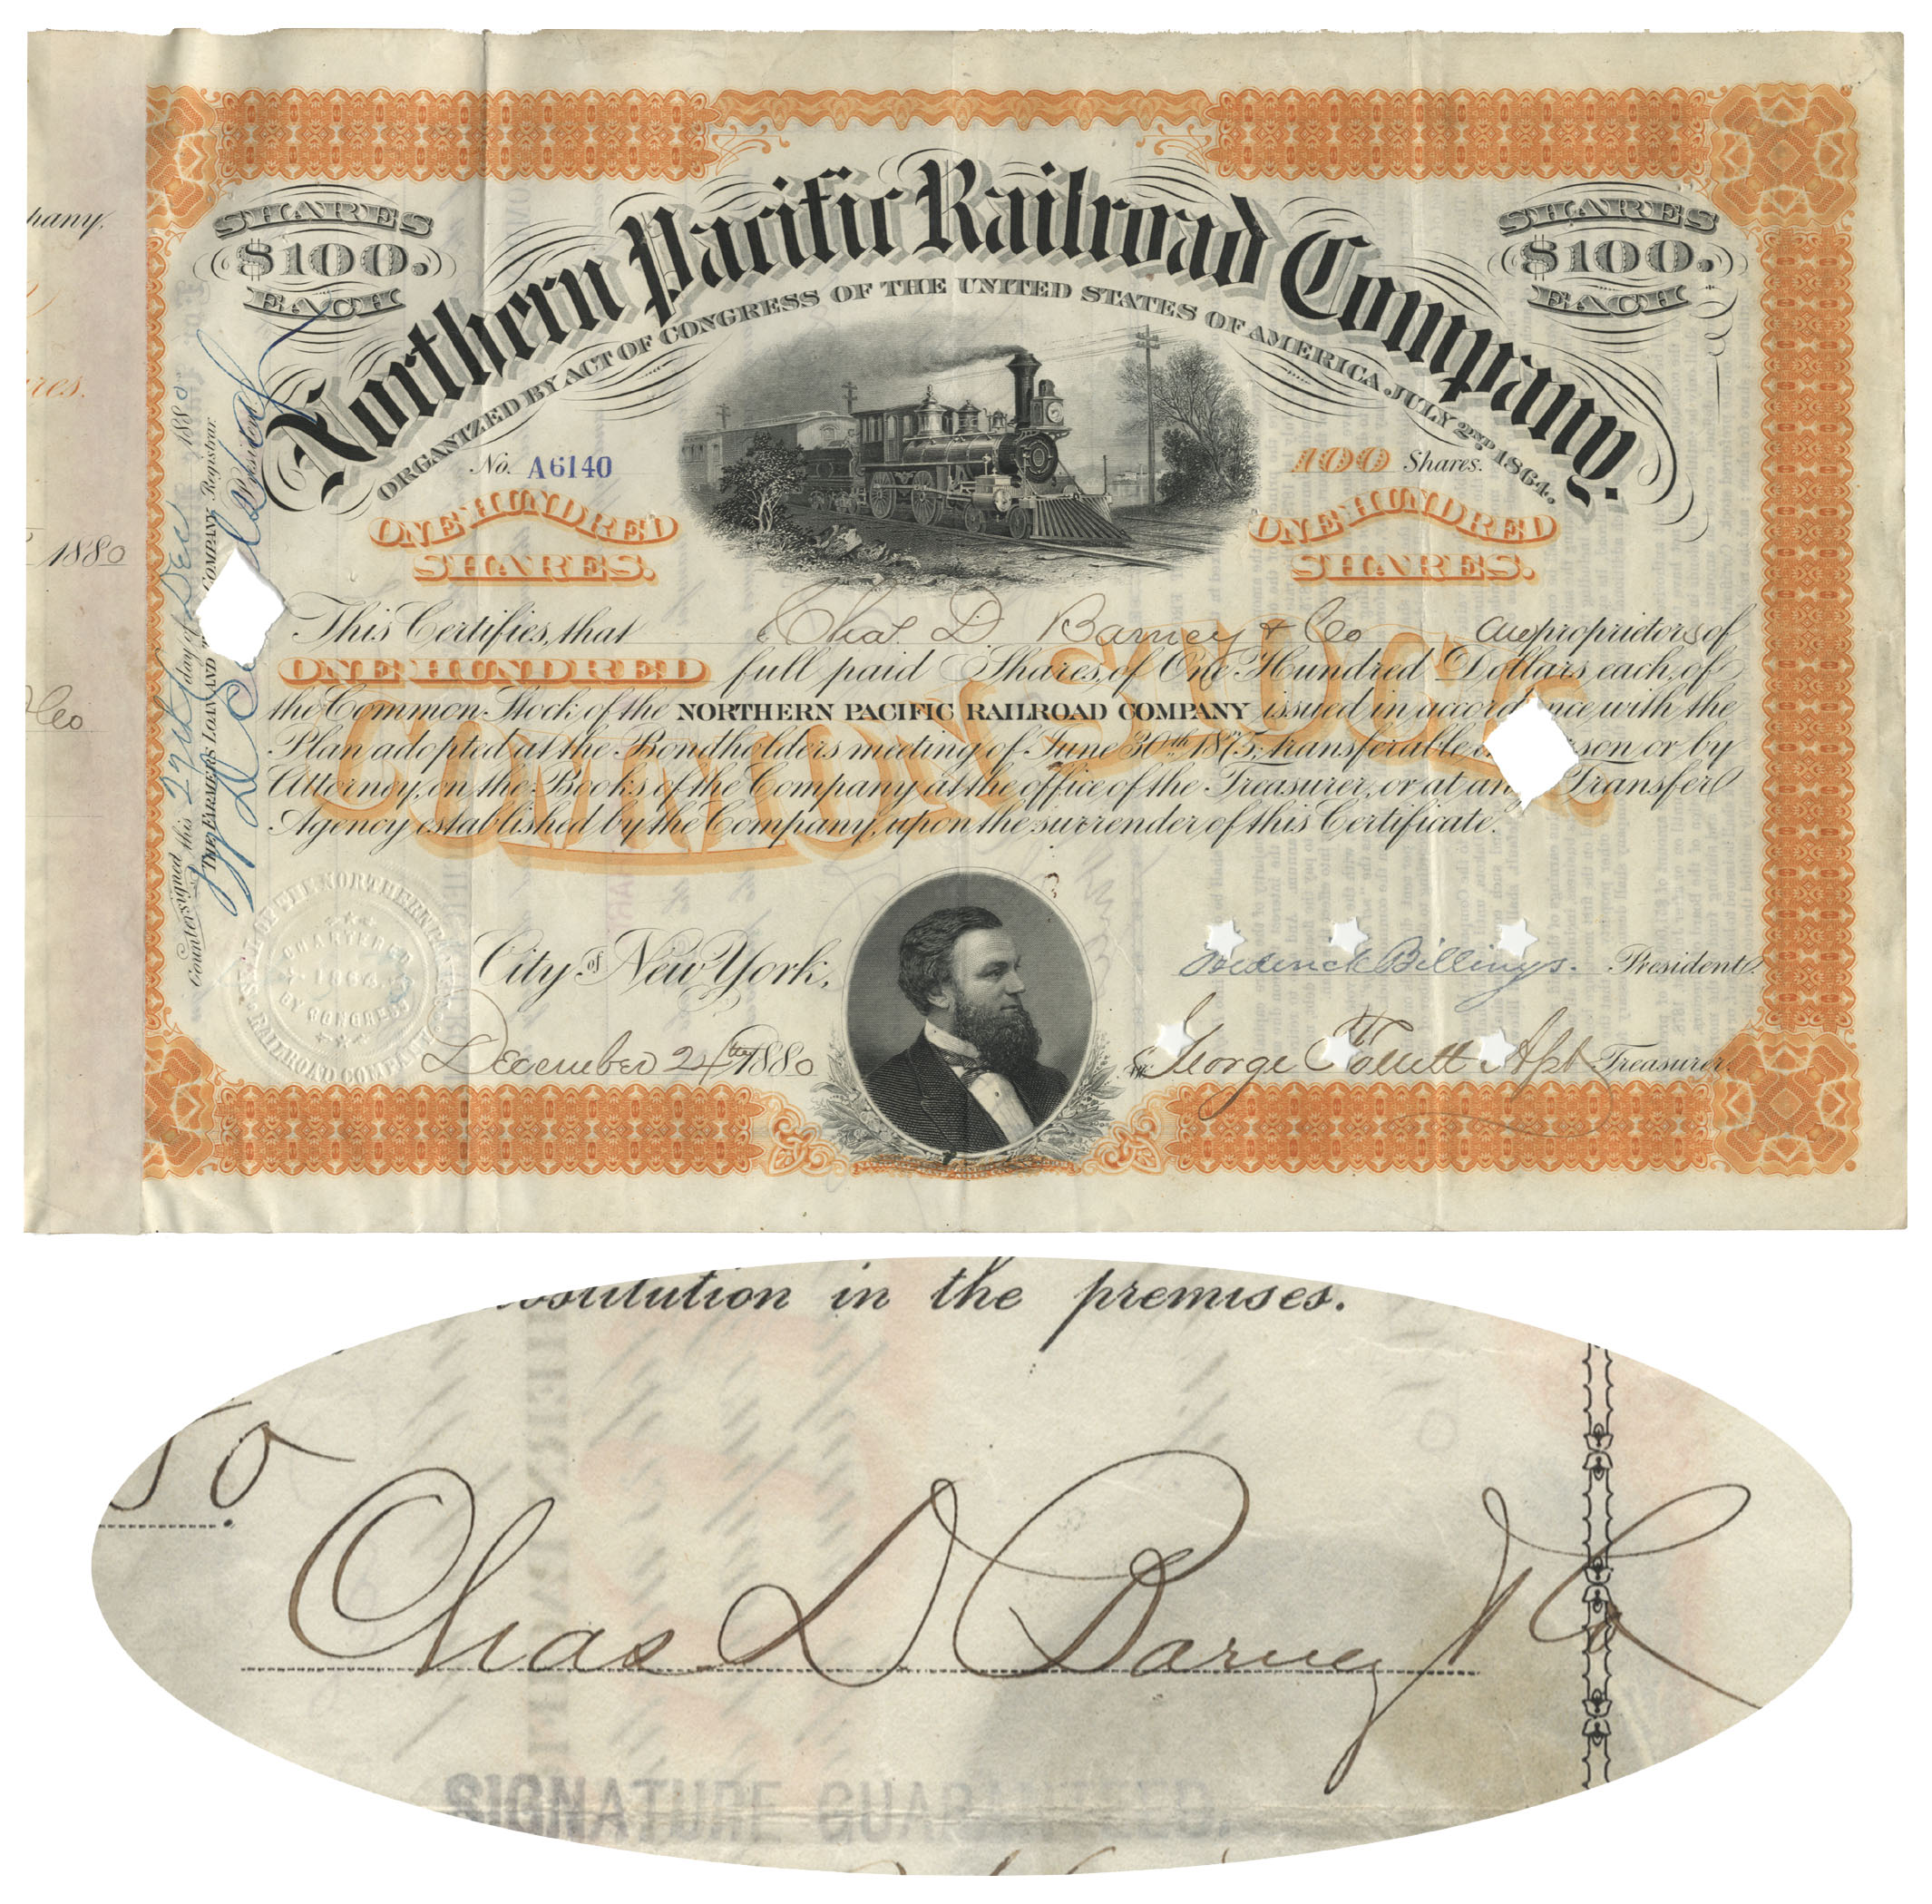 SHARES
$100.
EACH
Northern Pacific Railroad Company.
SHARES
$100.
EACH
ORGANIZED BY ACT OF CONGRESS OF THE UNITED STATES OF AMERICA, JULY 2ND 1864.
No. A6140
100 Shares.
ONE HUNDRED
SHARES.
ONE HUNDRED
SHARES.
This Certifies, that Chas. D Barney & Co are proprietors of
ONE HUNDRED full paid Shares, of One Hundred Dollars each, of
the Common Stock of the NORTHERN PACIFIC RAILROAD COMPANY issued in accordance with the
Plan adopted at the Bondholders meeting of June 30th 1875, transferable in person or by
Attorney, on the Books of the Company at the office of the Treasurer, or at any Transfer
Agency established by the Company, upon the surrender of this Certificate.
COMMON STOCK
City of New York,
December 24th 1880
Frederick Billings. President.
George Follett Asst Treasurer.
SEAL OF THE NORTHERN PACIFIC RAILROAD COMPANY
CHARTERED BY CONGRESS
1864
Countersigned this 27th day of Dec 1880
THE FARMERS LOAN AND COMPANY, Registrar
President
pany,
res.
1880
Co
in the premises.
To
Chas D Barney & Co
SIGNATURE GUARANTEED.